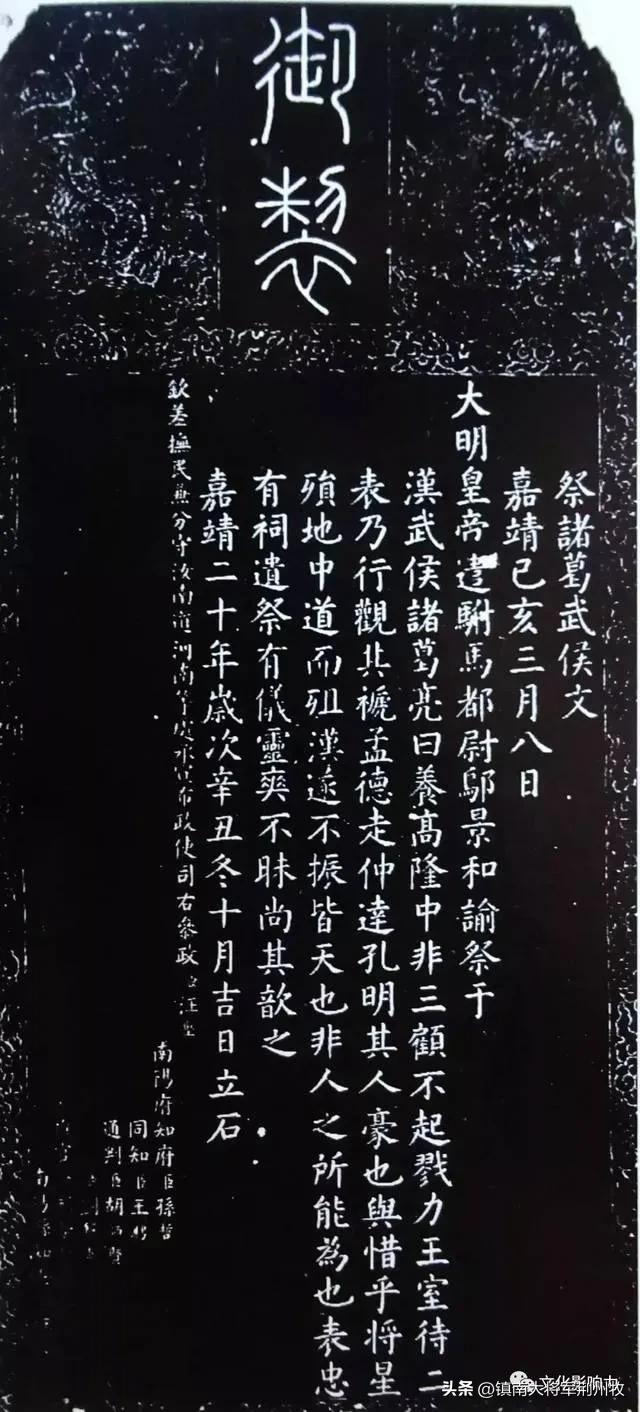 御製
祭諸葛武侯文
嘉靖己亥三月八日
大明皇帝遣駙馬都尉鄔景和諭祭于
漢武侯諸葛亮曰養髙隆中非三顧不起戮力王室待二
表乃行觀其褫孟德走仲達孔明其人豪也與惜乎将星
殞地中道而殂漢遂不振皆天也非人之所能為也表忠
有祠遺祭有儀靈爽不昧尚其歆之
嘉靖二十年歲次辛丑冬十月吉日立石
欽差撫民兼分守汝南道河南等處承宣布政使司右叅政臣汪
南陽府知府臣孫哲
同知臣王
通判臣胡
文化影响力
头条 @镇南大将军荆州牧